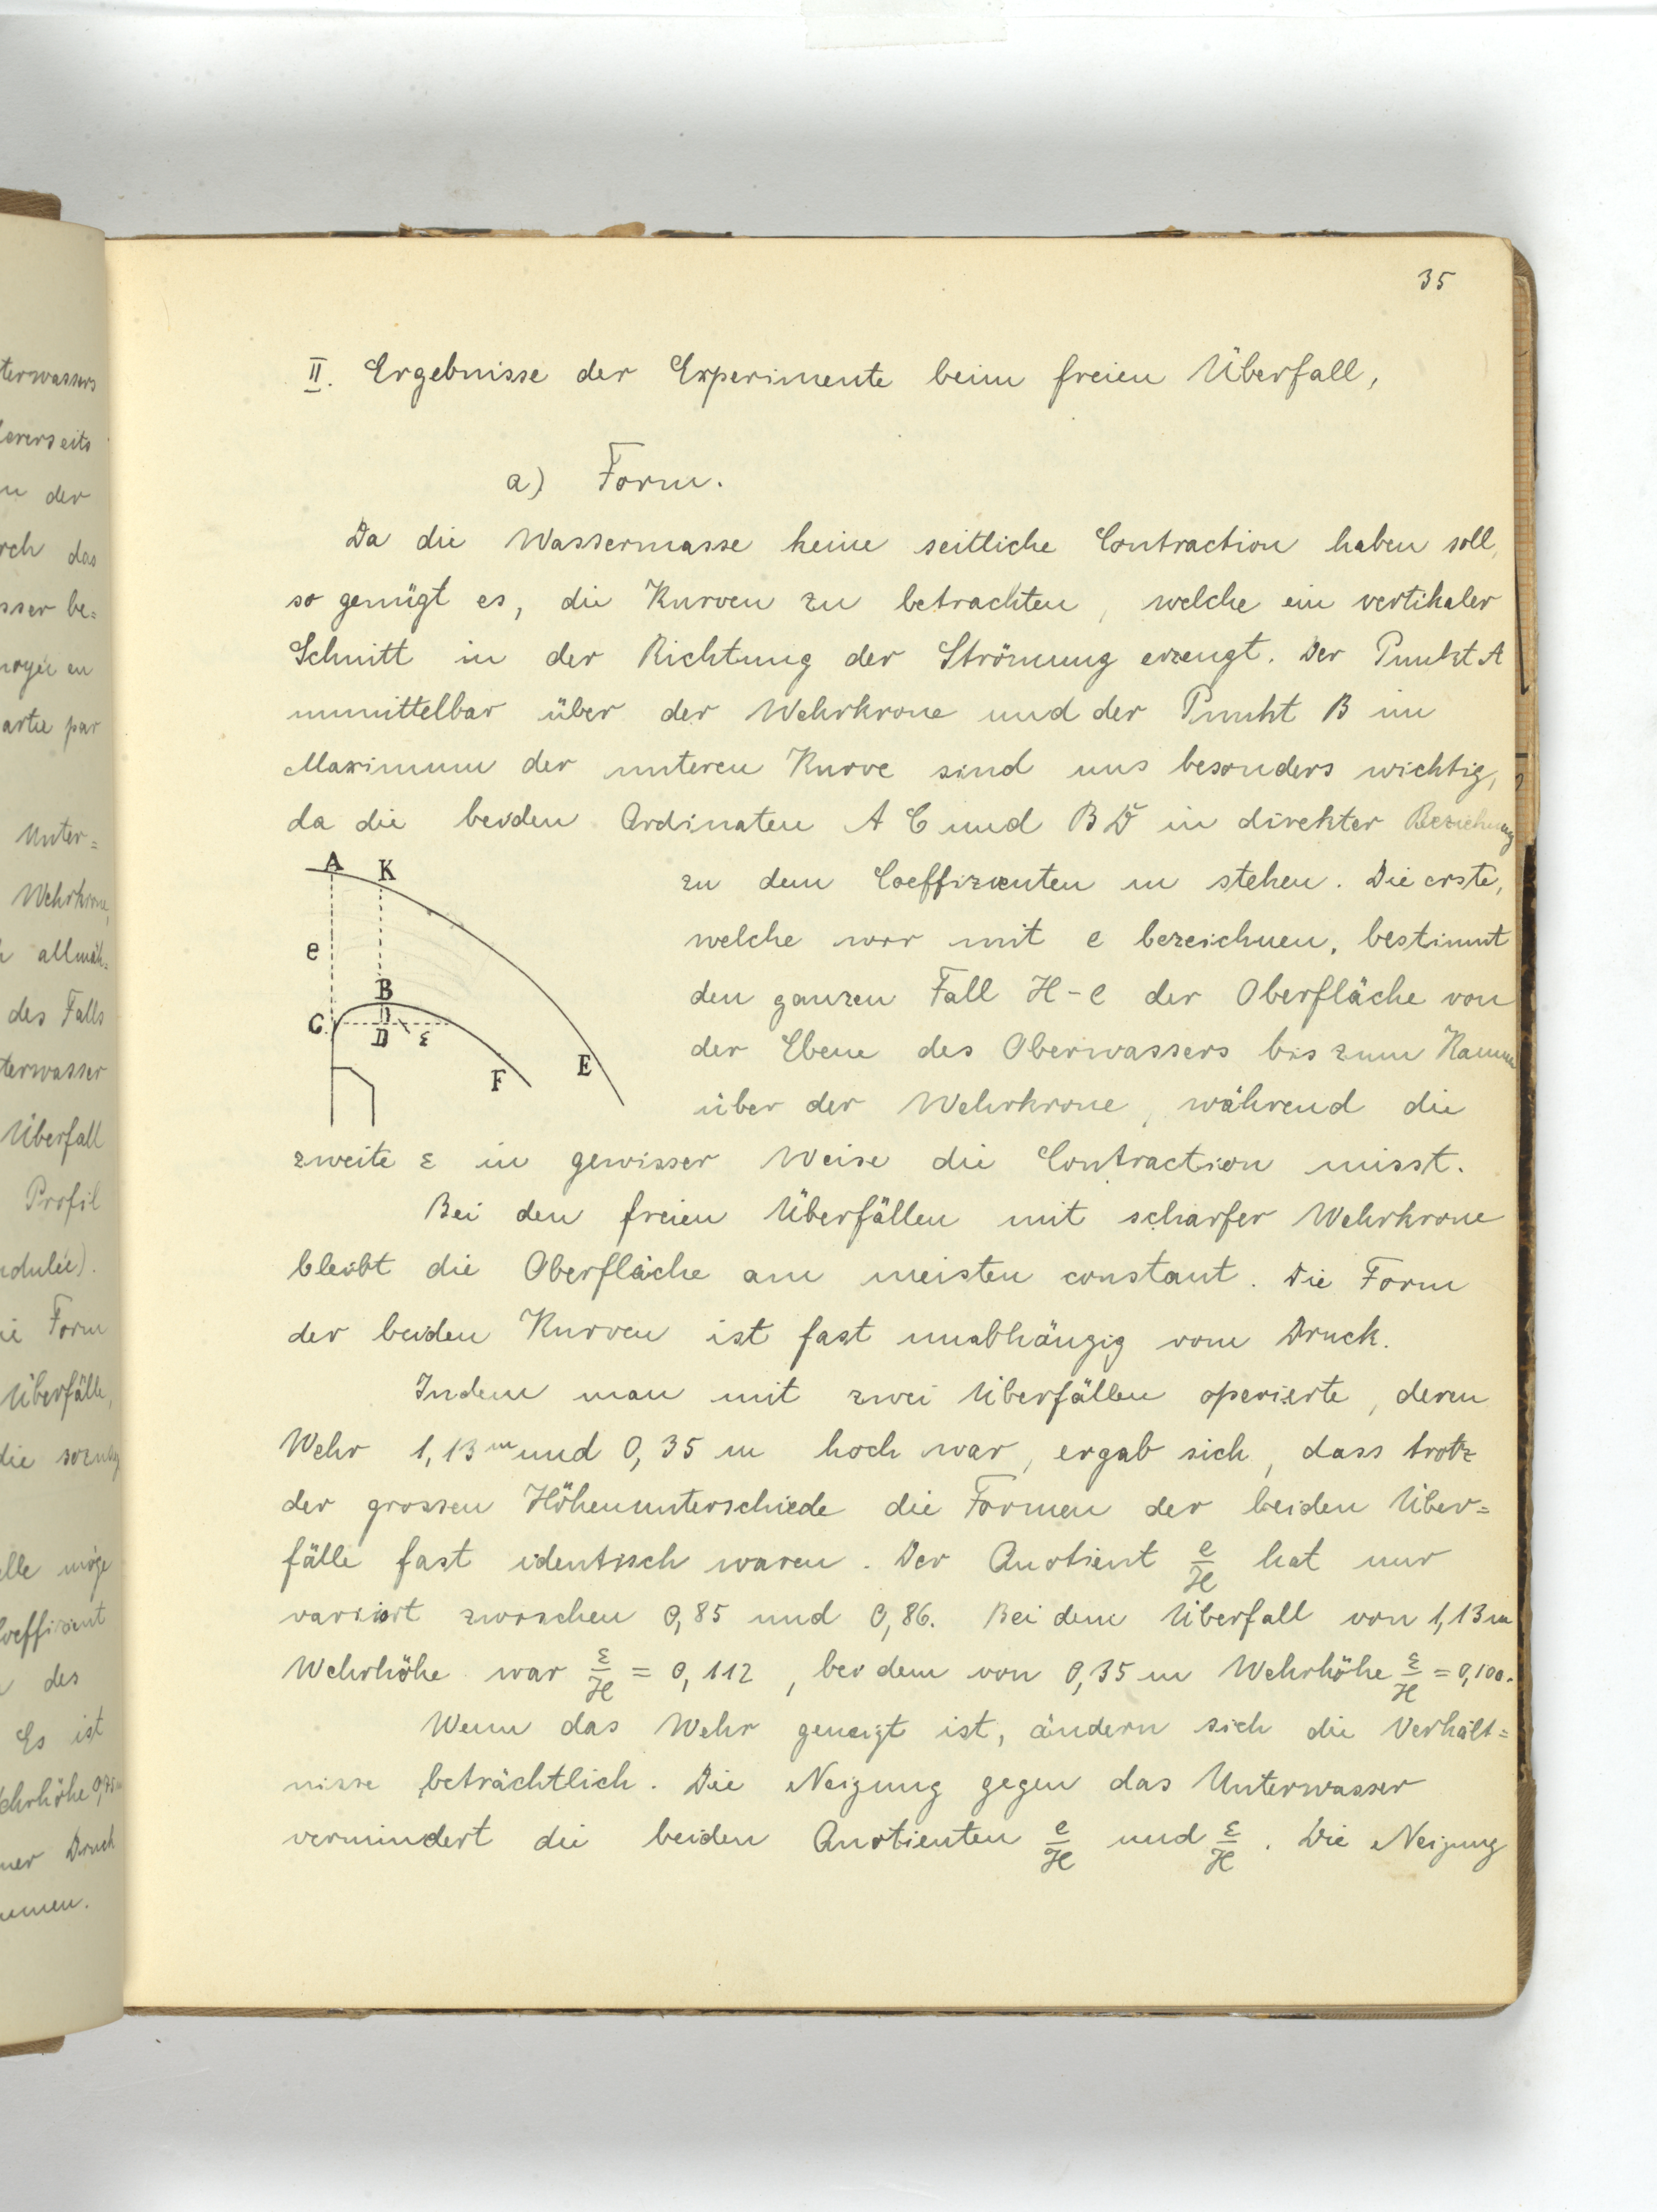 35
II. Ergebnisse der Experimente beim freien Überfall,
a) Form.
Da die Wassermasse keine seitliche Contraction haben soll,
so genügt es, die Kurven zu betrachten, welche ein vertikaler
Schnitt in der Richtung der Strömung erzeugt. Der Punkt A
unmittelbar über der Wehrkrone und der Punkt B im
Maximum der unteren Kurve sind uns besonders wichtig,
da die beiden Ordinaten A C und B D in direkter Beziehung
zu dem Coeffizienten m stehen. Die erste,
welche wir mit e bezeichnen, bestimmt
den ganzen Fall H - e der Oberfläche von
der Ebene des Oberwassers bis zum
über der Wehrkrone, während die
zweite ε in gewisser Weise die Contraction misst.
A K
e
B
C D ε
F E
Bei den freien Überfällen mit scharfer Wehrkrone
bleibt die Oberfläche am meisten constant. Die Form
der beiden Kurven ist fast unabhängig vom Druck.
Indem man mit zwei Überfällen operierte, deren
Wehr 1,13 m und 0,35 m hoch war, ergab sich, dass trotz
der grossen Höhenunterschiede die Formen der beiden Über=
fälle fast identisch waren. Der Quotient e/H hat nur
variiert zwischen 0,85 und 0,86. Bei dem Überfall von 1,13 m
Wehrhöhe war ε/H = 0,112, bei dem von 0,35 m Wehrhöhe ε/H = 0,100.
Wenn das Wehr geneigt ist, ändern sich die Verhält=
nisse beträchtlich. Die Neigung gegen das Unterwasser
vermindert die beiden Quotienten e/H und ε/H. Die Neigung
terwassers
ererseits
n der
rch das
sser be=
noyée en
artie par
Unter=
Wehrkrone,
h allmäh=
des Falls
terwasser
Überfall
Profil
ndulée).
ie Form
Überfälle,
die
elle möge
oeffizient
des
Es ist
ehrhöhe
ner Druck